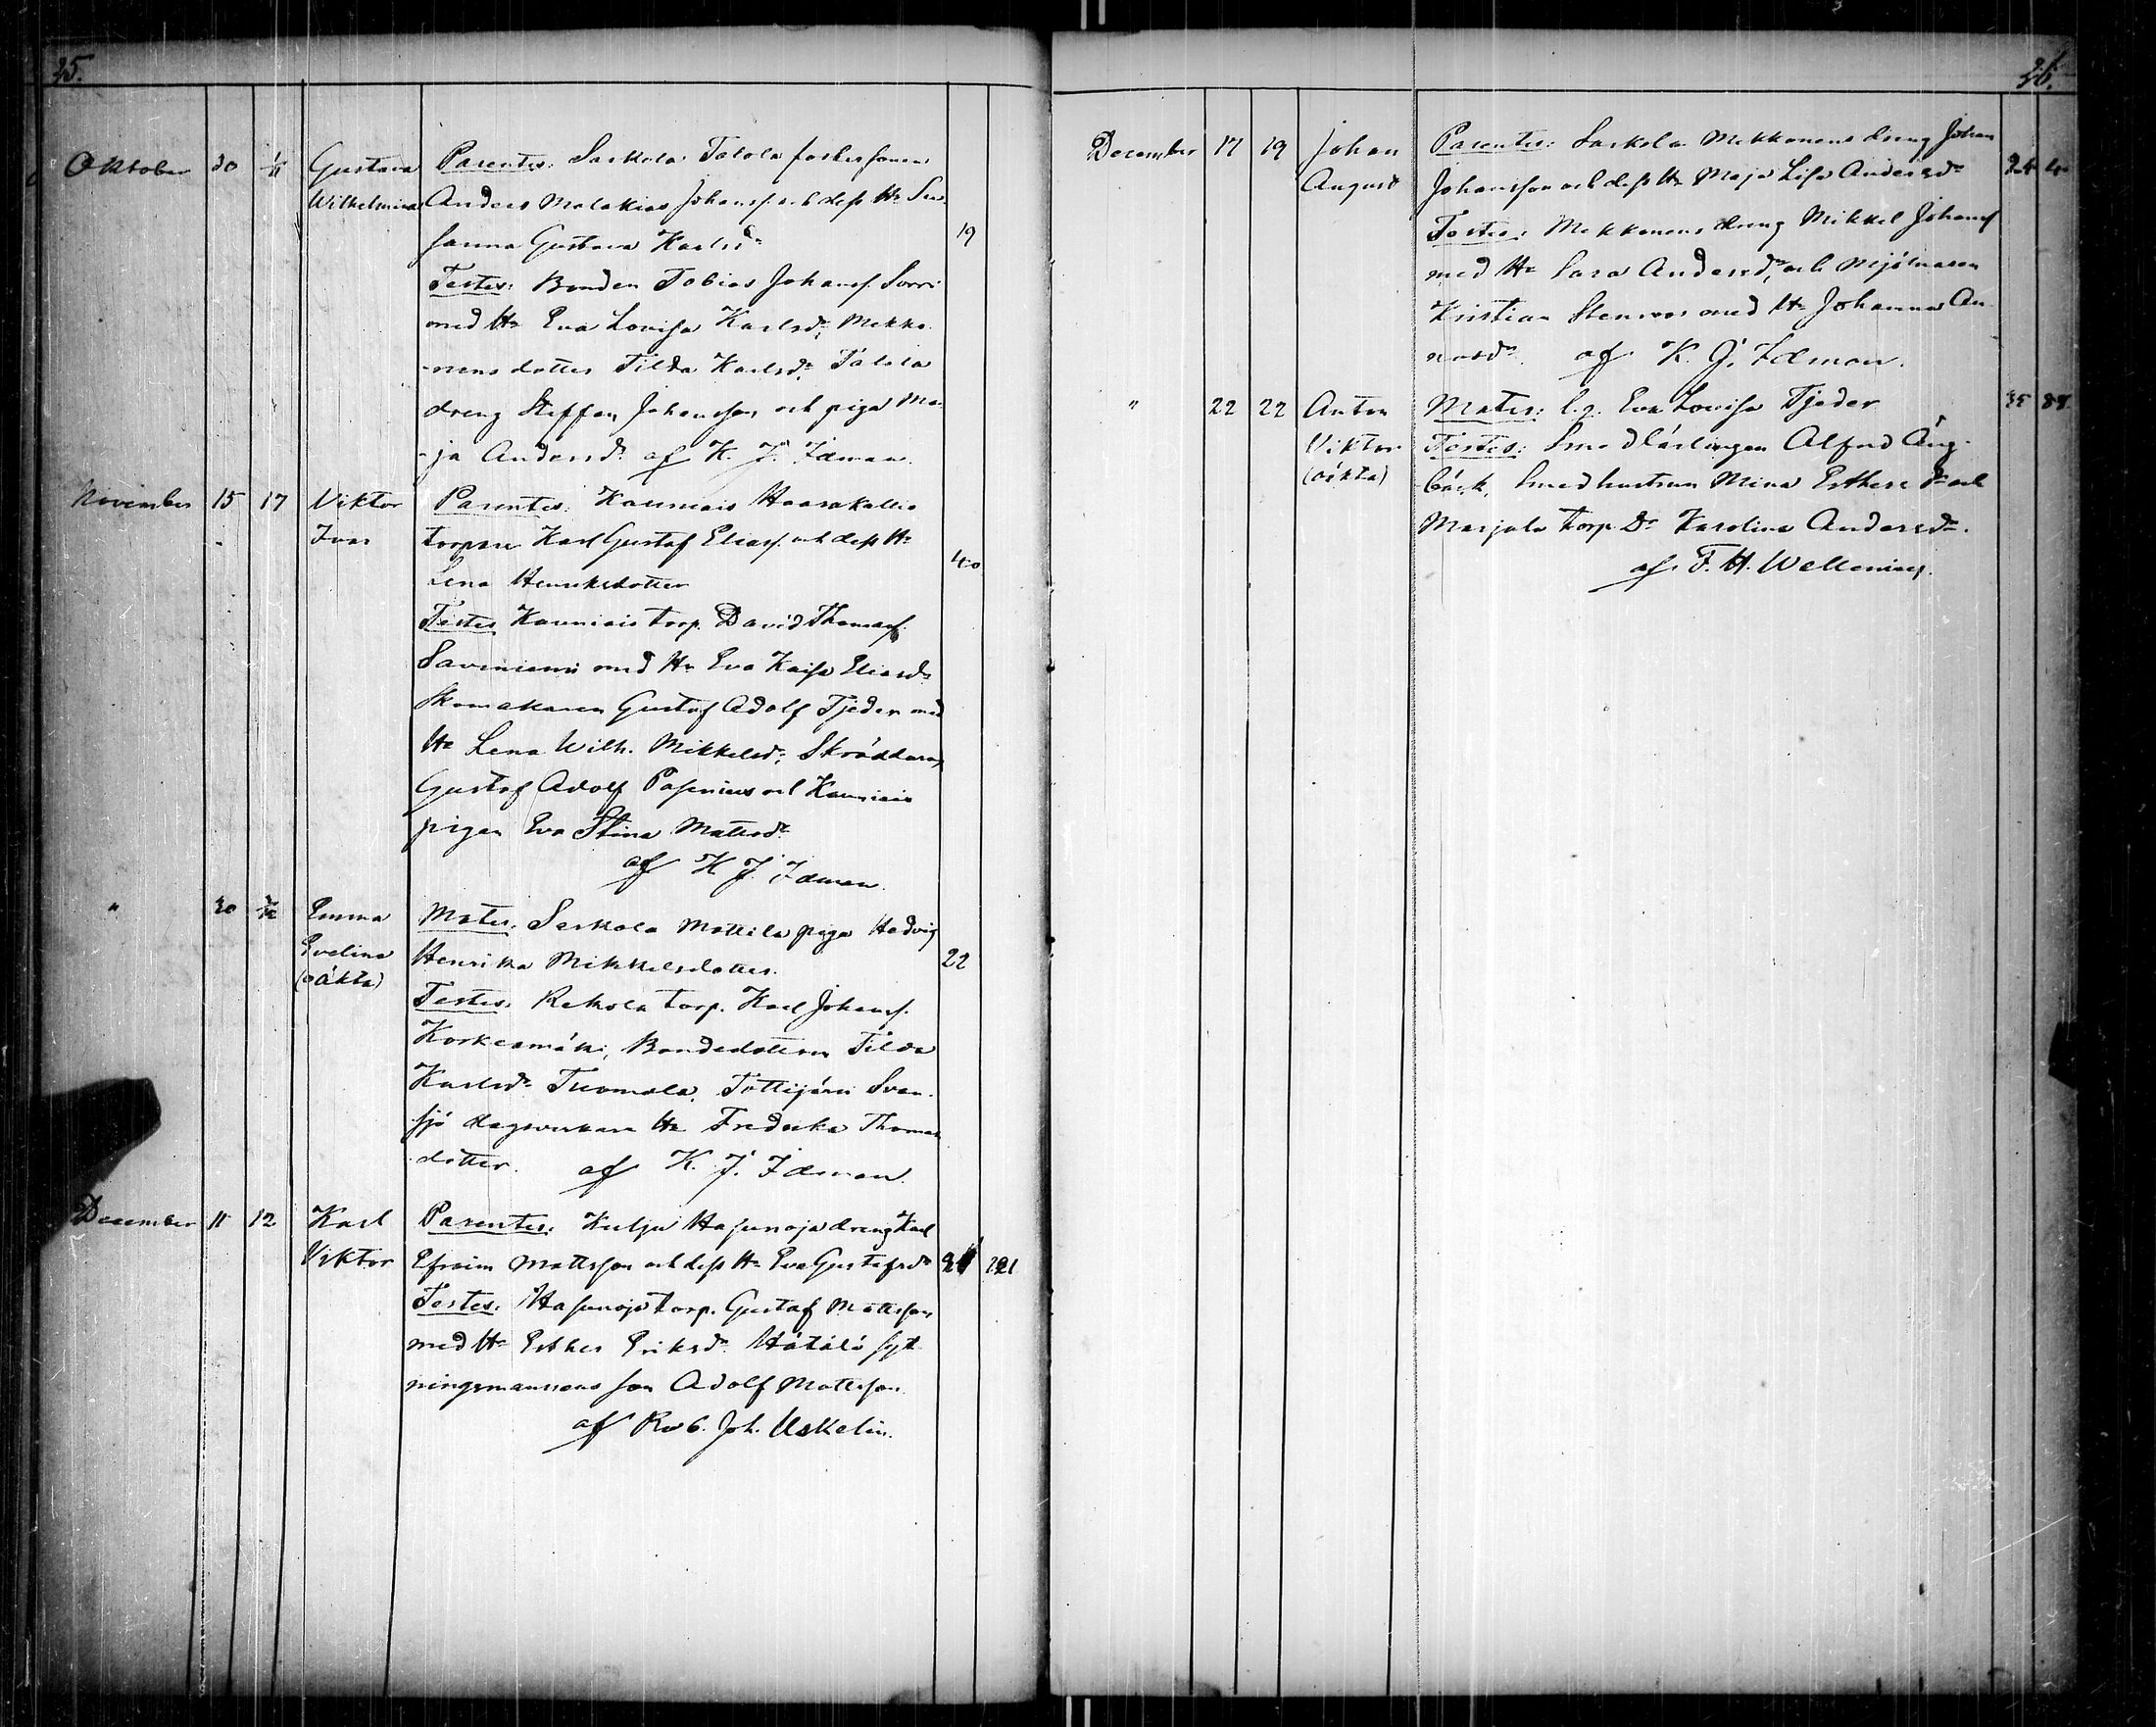 25.
Oktober 30 1/11 Gustava Parentes: Saskola Talola fostersonen
Wilhelmina Anders Malakias Johanss. och dess Hu Su-
sanna Gustava Karlsdr 19
Testes: Bonden Tobias Johanss. Sorri
med Hu Eva Lovisa Karlsdr, Mekko-
nens dotter Tilda Karlsdr, Talola
dreng Steffan Johansson och piga Ma-
ja Andersdr. af K. J. Idman.
November 15 17 Viktor Parentes: Kauniais Haarakallio
Ivar torpare Karl Gustaf Eliass. och dess Hu
Lena Henriksdotter 40
Testes Kauniais torp. David Thomass.
Saveniemi med Hu Eva Kaisa Eliasdr
Skomakaren Gustaf Adolf Tjeder med
Hu Lena Wilh. Mikkelsdr, Skräddaren
Gustaf Adolf Pasenius och Kauniais
pigan Eva Stina Mattsdr
af K J. Idman.
" 30 Emma Mater: Saskola Mattila piga Hedvig
Evelina Henrika Mikkelsdotter. 22
(oäkta)
Testes: Rekola torp. Karl Johanss.
Korkeamäki, Bondedottern Tilda
Karlsdr Tuomola, Tottijärvi Svan-
sjö dagsverkare Hu Fredrika Thomas
dotter. af K. J. Idman.
December 11 12 Karl Parentes: Kulju Hasunoja dreng Karl
Viktor Efraim Mattsson och dess Hu Eva Gustafsdr 21
Testes: Hasunoja torp. Gustaf Mattsson
med Hu Esther Eriksdr. Hätälä syt-
ningsmannens son Adolf Mattsson.
af Rob. Joh. Uskelin.
26.
December 17 19 Johan Parentes: Saskola Mekkonens dreng Johan
August Johansson och dess Hu Maja Lisa Andersdr 24
Testes: Mekkonens dreng Mikkel Johanss
med Hu Sara Andersdr, och Mjölnaren
Kristian Stenroos med Hu Johanna An-
dr. af K. J. Idman.
" 22 22 Anton Mater: l. q. Eva Lovisa Tjeder 35
Viktor Testes: Smedlärlingen Alfred Äng-
(oäkta) bäck, Smedhustrun Mina Esthers dr och
Marjala torp. Dr Karolina Andersdr.
af F. H. Wellenius.